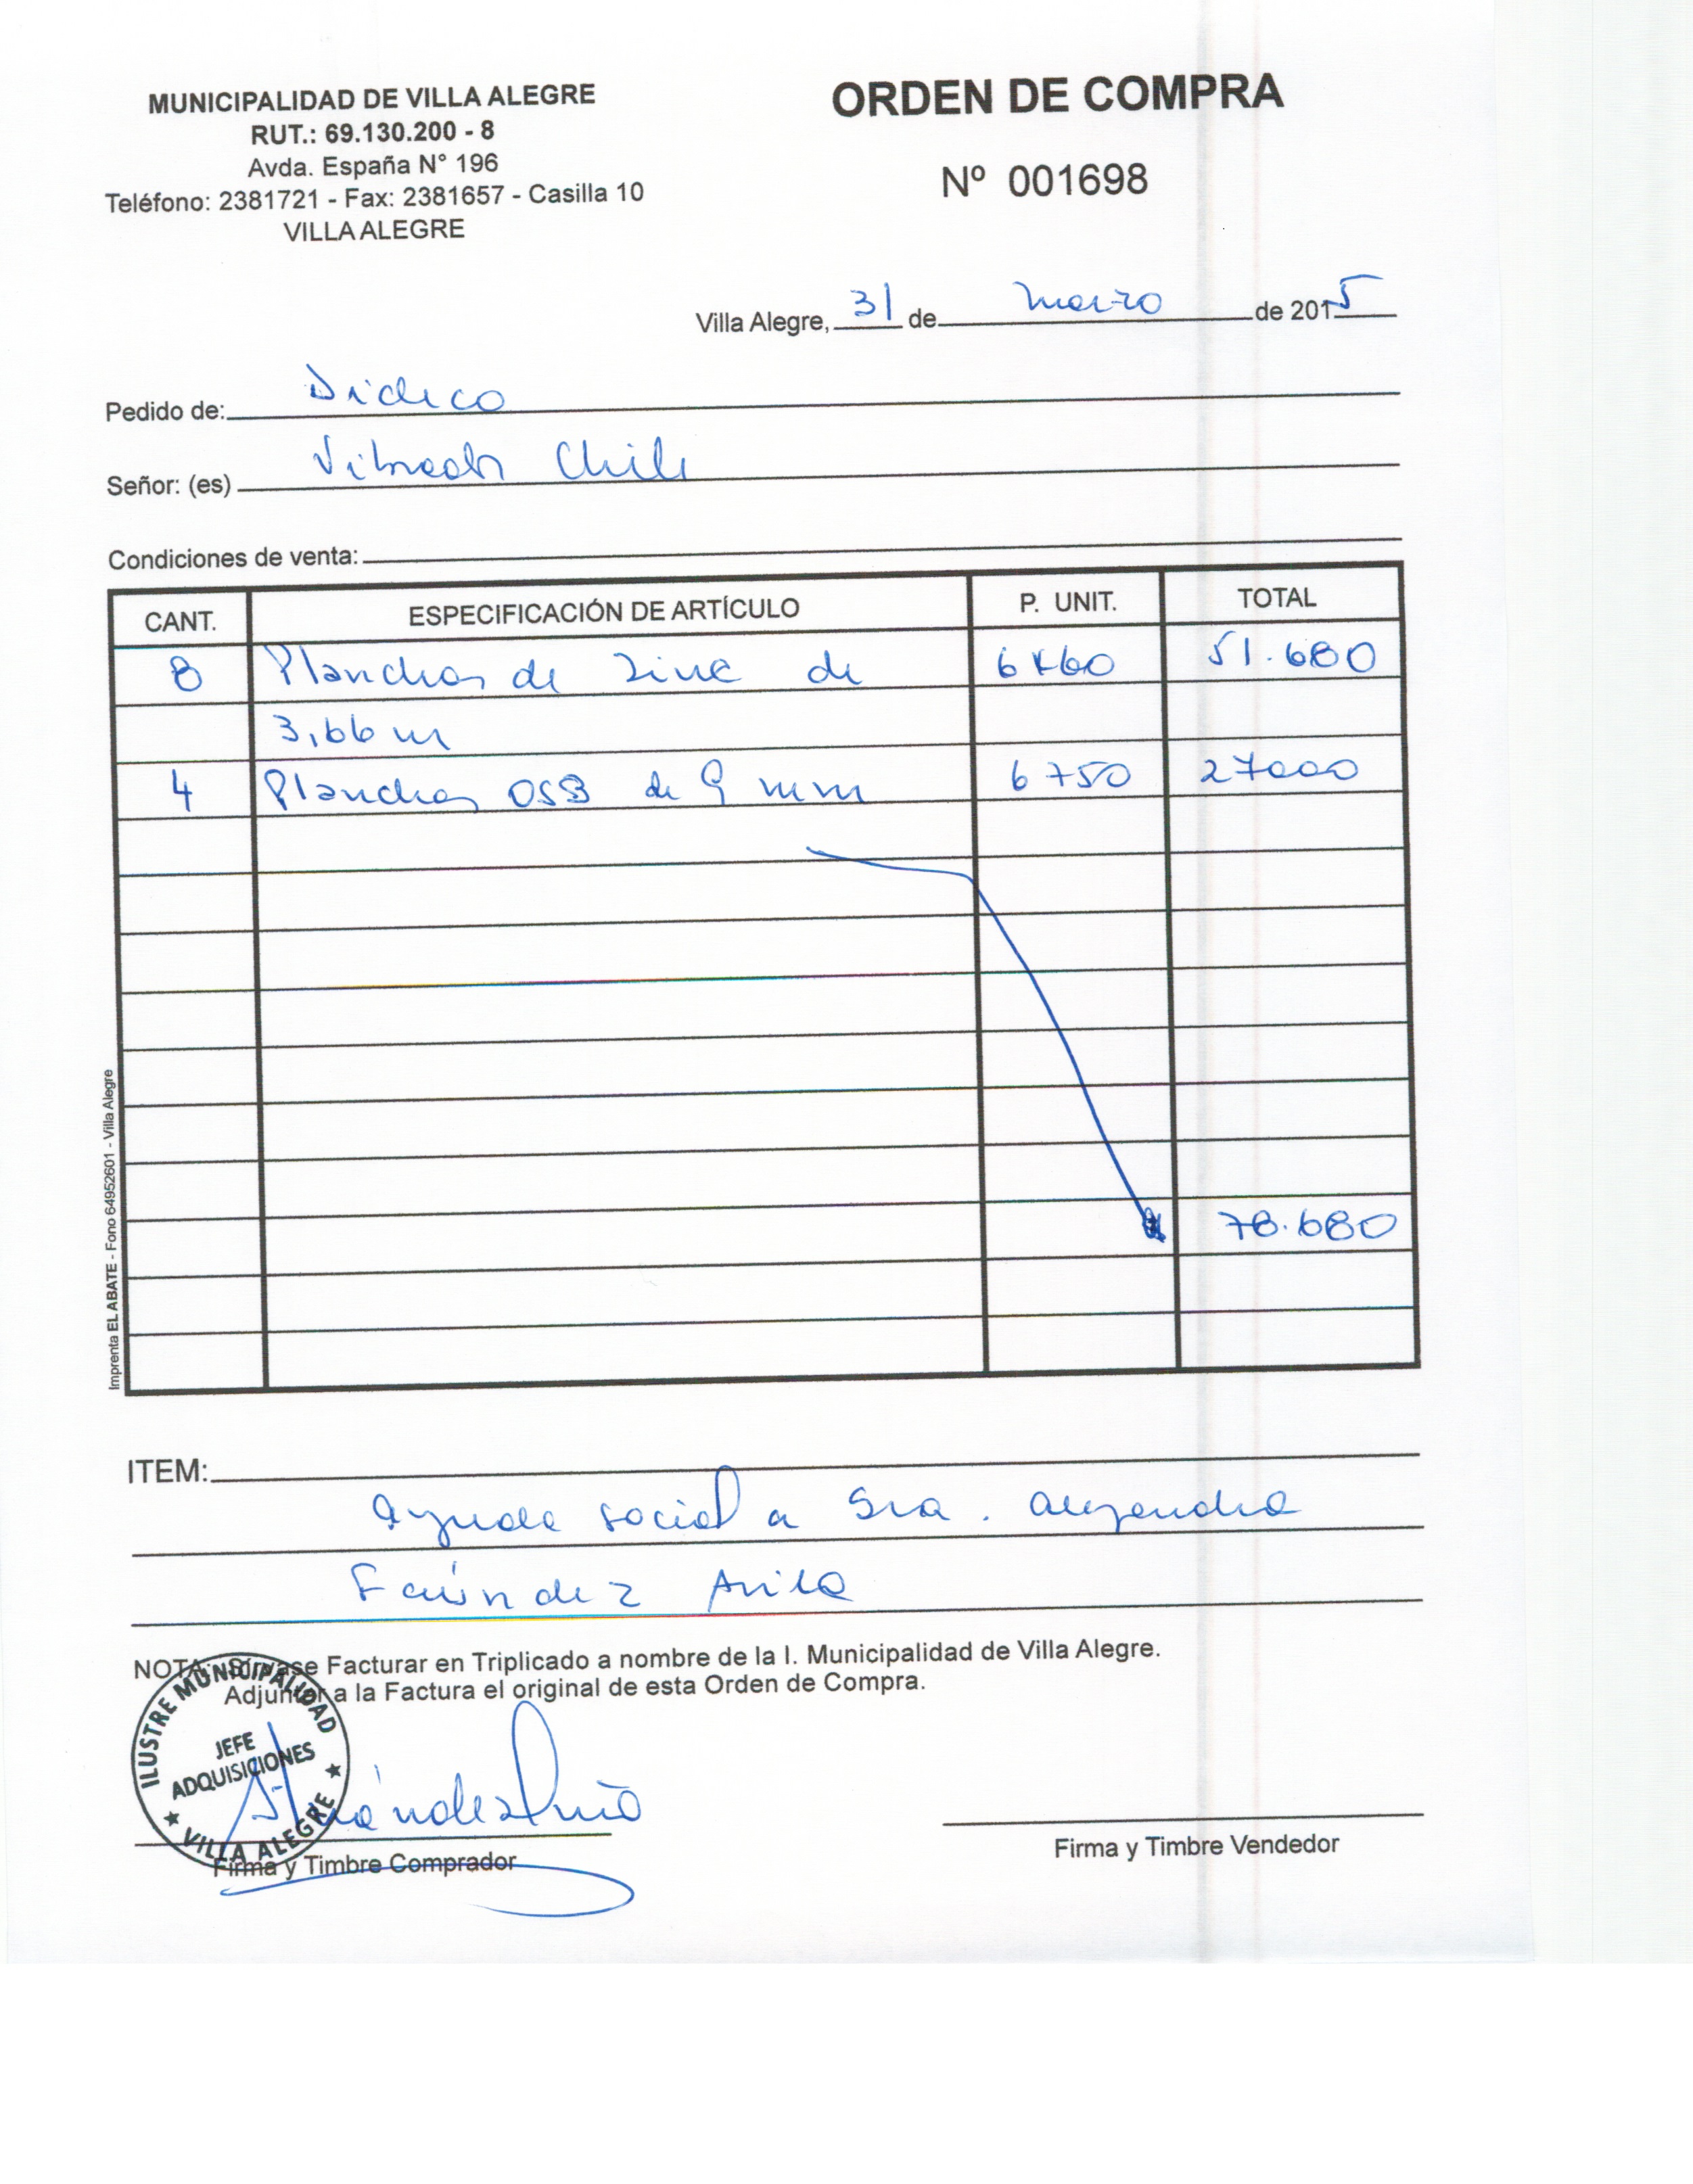 MUNICIPALIDAD DE VILLA ALEGRE
RUT.: 69.130.200 - 8
Avda. España N° 196
Teléfono: 2381721 - Fax: 2381657 - Casilla 10
VILLA ALEGRE
ORDEN DE COMPRA
Nº 001698
Villa Alegre, 31 de marzo de 2015
Pedido de: Dideco
Señor: (es) Chile
Condiciones de venta:
CANT. ESPECIFICACIÓN DE ARTÍCULO P. UNIT. TOTAL
8 Planchas de Zinc de 6460 51.680
3,66 m
4 Planchas OSB de 9 mm 6750 27000
78.680
Imprenta EL ABATE - Fono 64952601 - Villa Alegre
ITEM:
Ayuda social a Sra. Alejandra
Faúndez Avila
NOTA: Sírvase Facturar en Triplicado a nombre de la I. Municipalidad de Villa Alegre.
Adjuntar a la Factura el original de esta Orden de Compra.
ILUSTRE MUNICIPALIDAD
JEFE
ADQUISICIONES
★ VILLA ALEGRE ★
Firma y Timbre Comprador
Firma y Timbre Vendedor